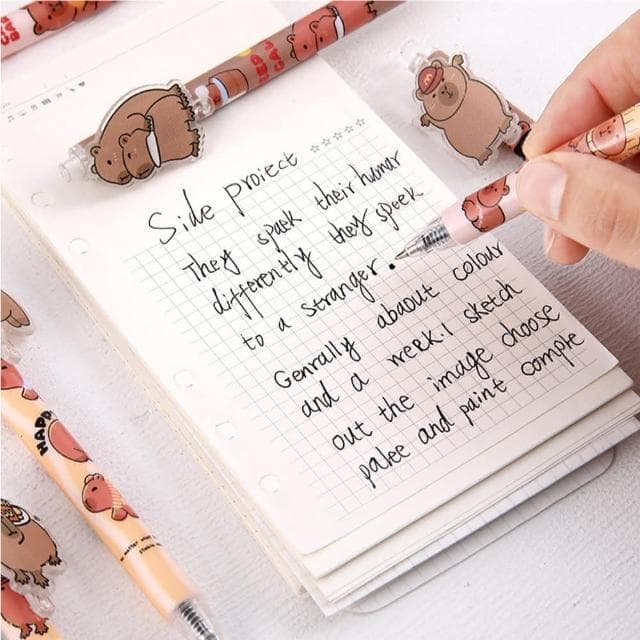 Side proiect
They spaek their humar
differently they speek
to a stranger.
Genrally abaout colour
and a week.1 sketch
out the image choose
palee and paint comple
HAPP